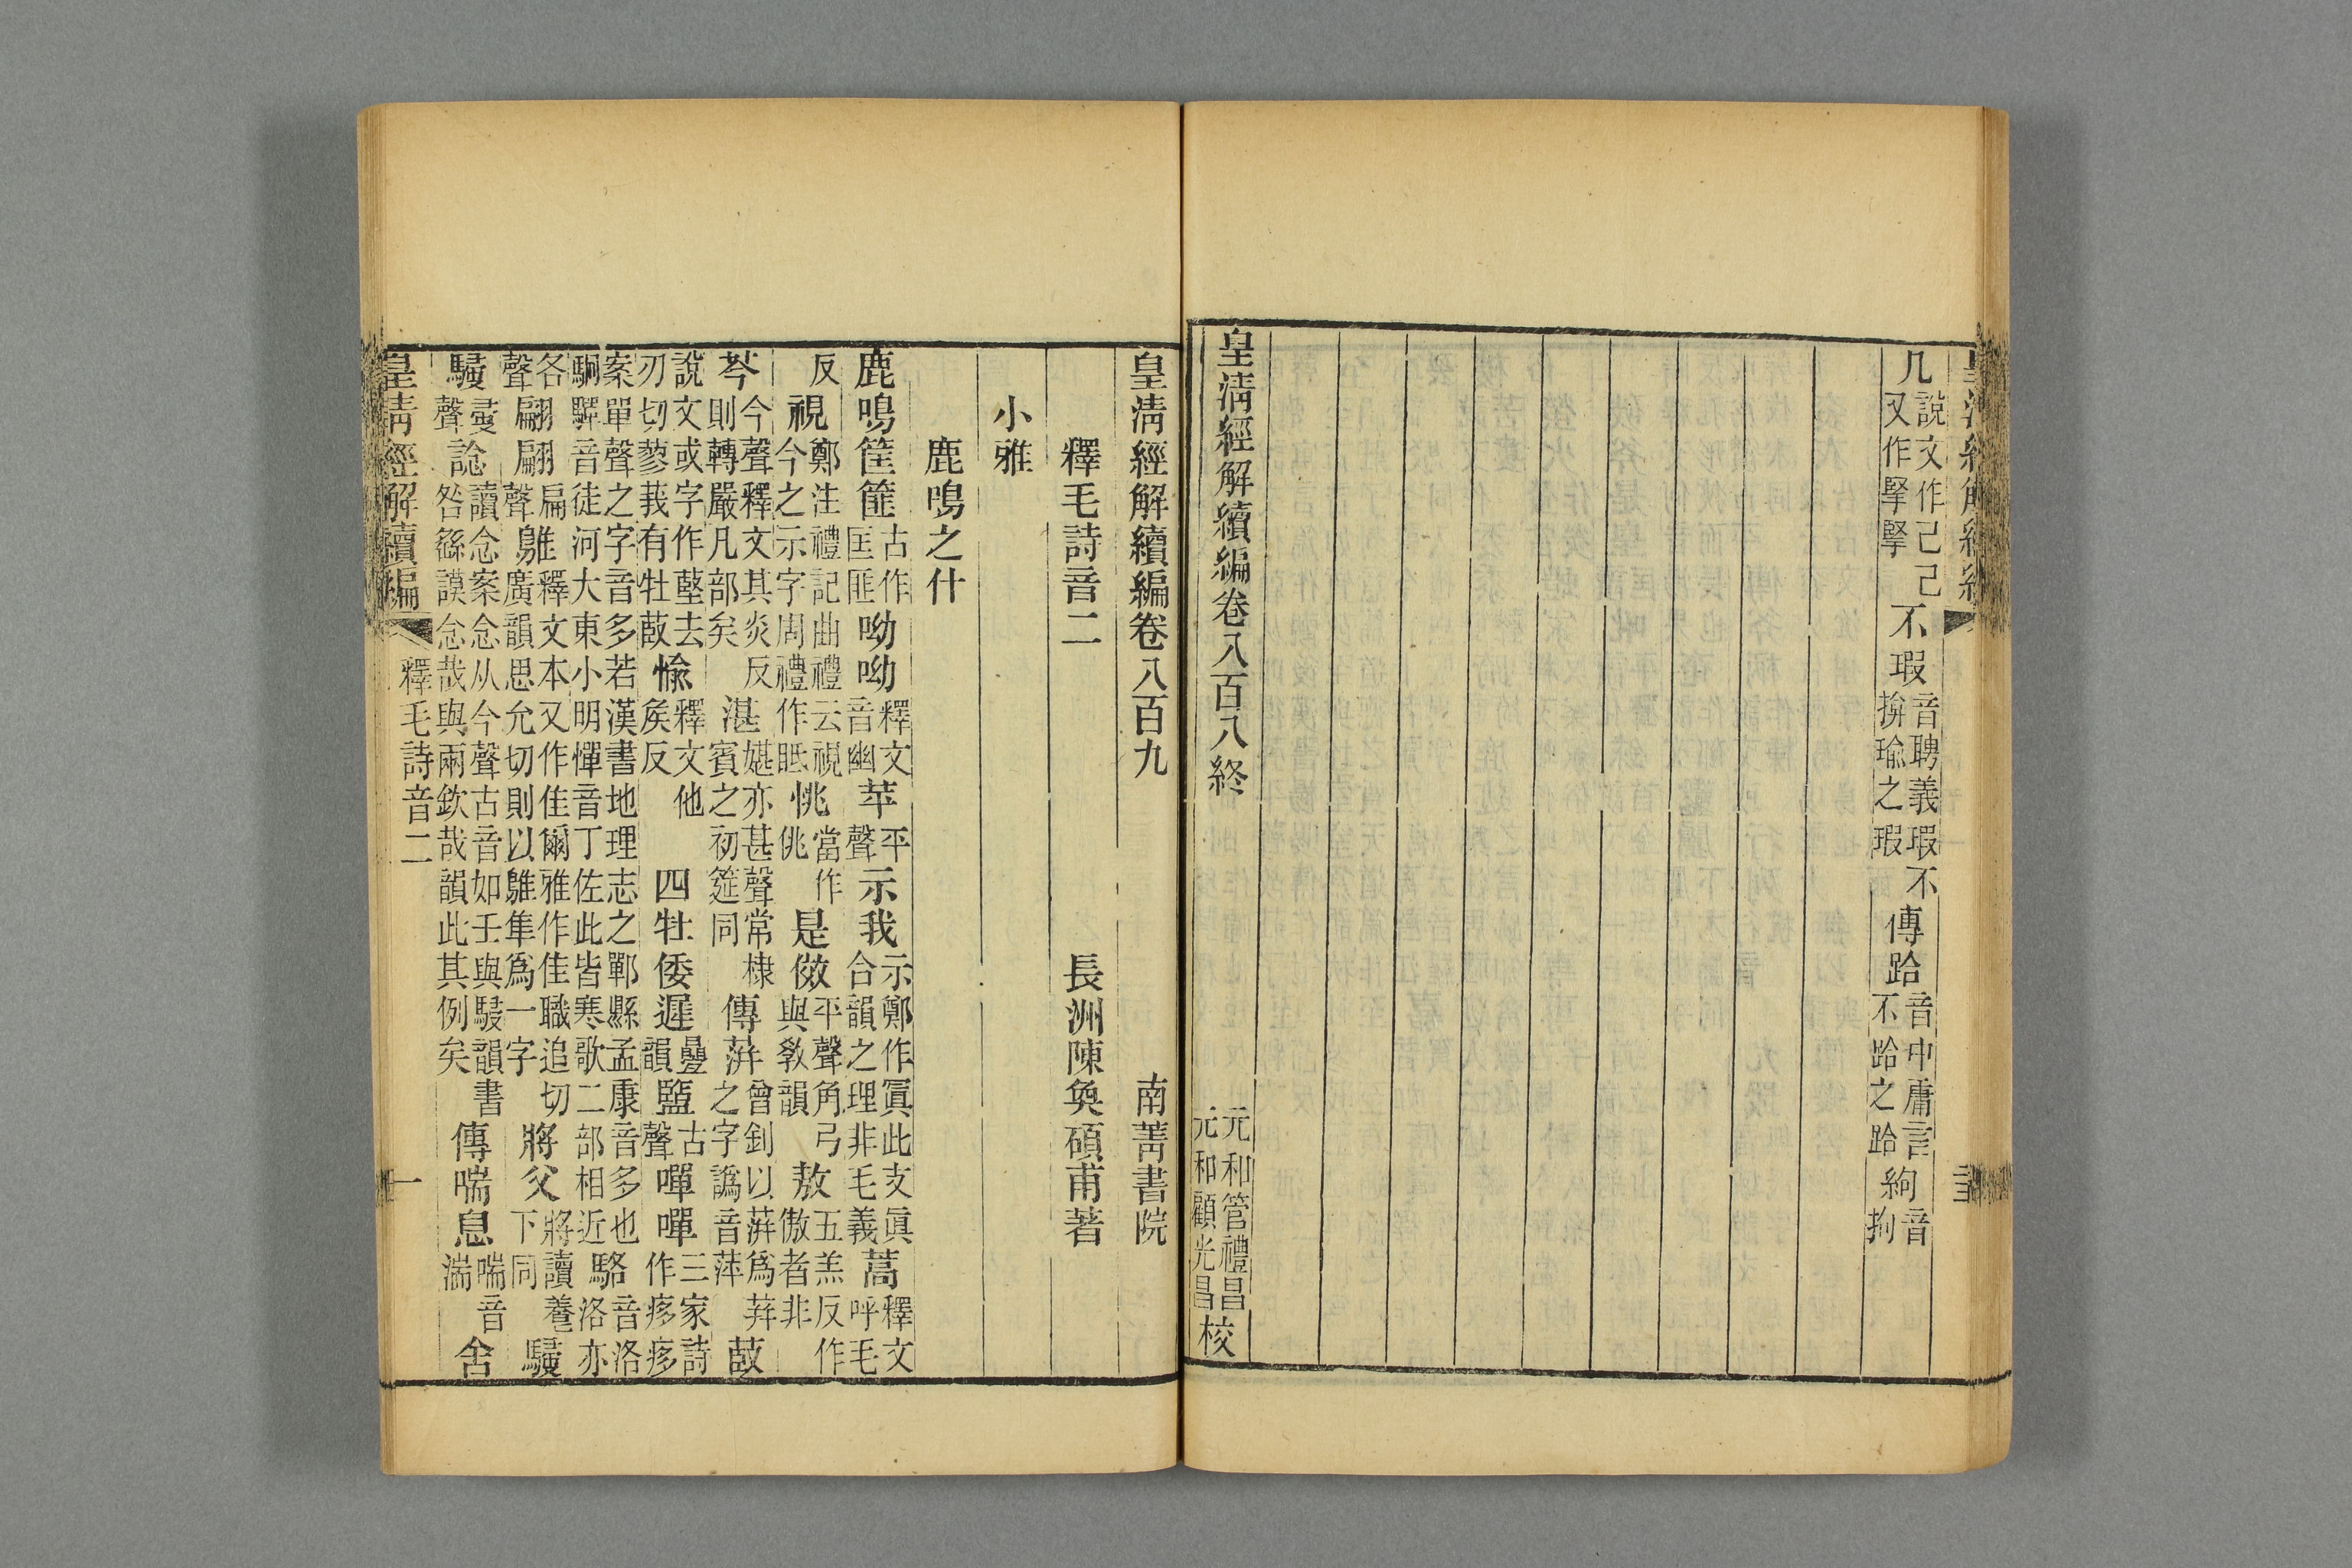 几說文作己己又作掔掔不瑕音聘義瑕不揜瑜之瑕傳跲音中庸言不跲之跲絇音拘
皇清經解續編卷八百八終
元和管禮昌元和顧光昌校
皇清經解續編卷八百九
南菁書院
釋毛詩音二
長洲陳奐碩甫著
小雅
鹿鳴之什
鹿鳴筐篚古作匡匪呦呦釋文音幽苹平聲示我示鄭作寘此支眞合韻之理非毛義蒿釋文呼毛
反視鄭注禮記曲禮云視今之示字周禮作眡恌當作佻是傚平聲角弓與敎韻敖五羔反作傲者非
芩今聲釋文其炎反則轉嚴凡部矣湛媅亦甚聲常棣賓之初筵同傳蓱曾釗以蓱爲荓之字譌音萍菣
說文或字作䓳去刃切蔘莪有牡菣愉釋文他矦反四牡倭遲曡韻盬古聲嘽嘽三家詩作痑痑
案單聲之字音多若漢書地理志之鄲縣孟康音多也駧驒音徒河大東小明憚音丁佐此皆寒歌二部相近駱音洛洛亦
各聲翩翩扁聲鵻釋文本又作隹爾雅作隹職追切廣韻思允切則以鵻隼爲一字將父將讀養下同駸
駸𠬶聲諗讀念案念从今聲古音如壬與駸韻書咎繇謨念哉與兩欽哉韻此其例矣傳喘息喘音湍舍
皇清經解續編
釋毛詩音二
一